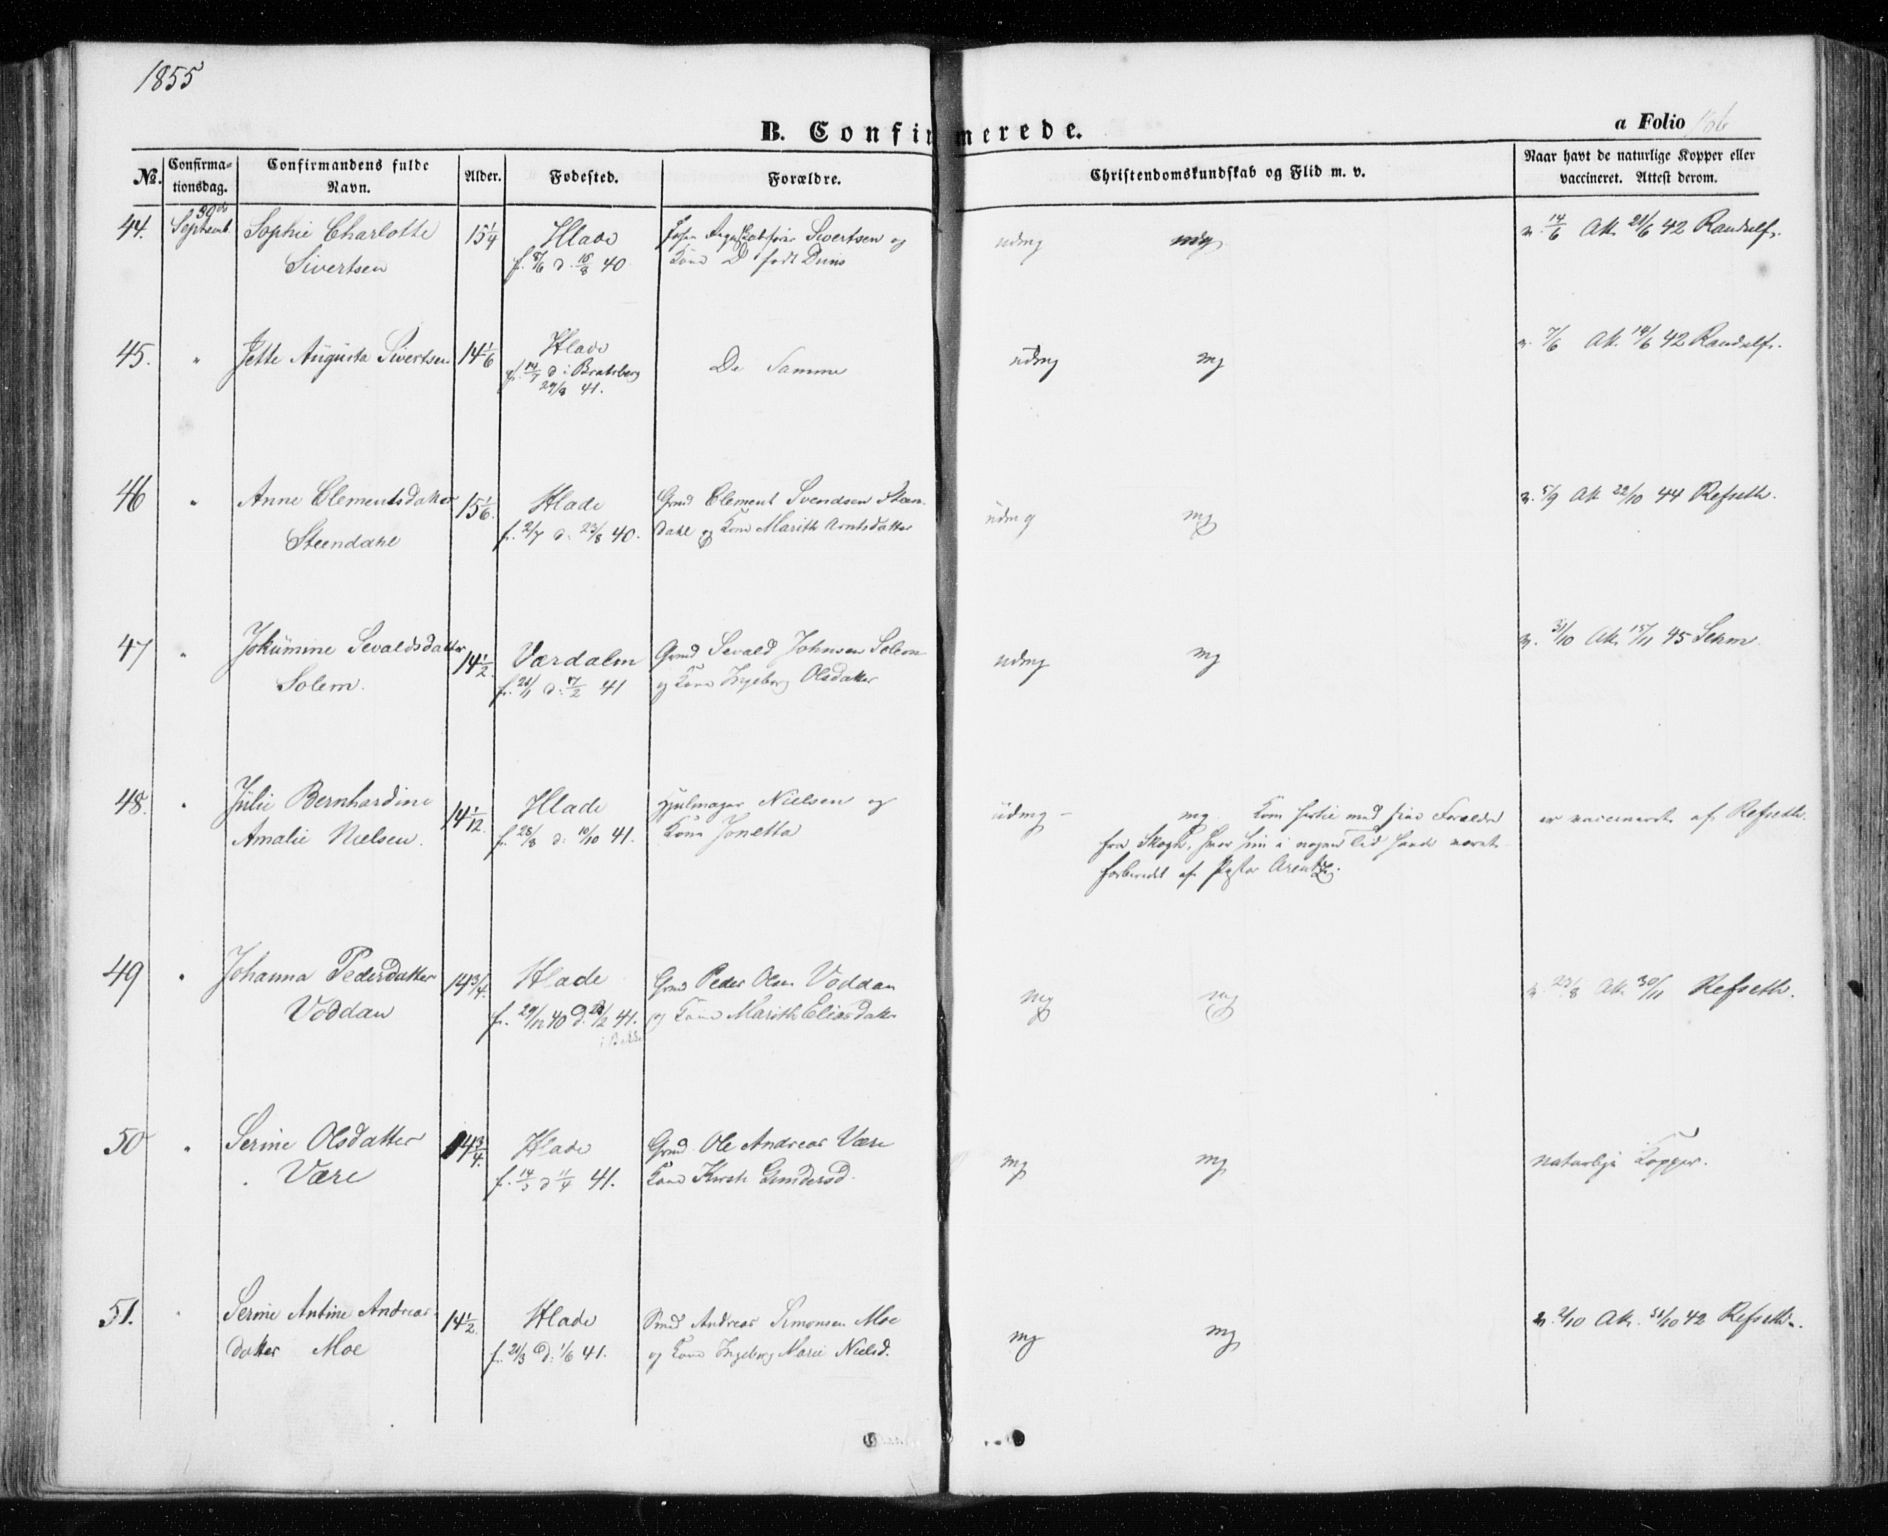 1855
B. Confirmerede.
a Folio 186
No. Confirma-tionsdag. Confirmandens fulde Navn. Alder. Fødested. Forældre. Christendomskundskab og Flid m. v. Naar havt de naturlige Kopper eller vaccineret. Attest derom.
44. Septemb. 30te Sophie Charlotte 15 1/4 Hlade Sivertsen og udmg mg v. 14/6 Att. 21/6 42 Randulf.
Sivertsen f. 8/6 d. 16/8 40 Kone født
45. " Jette Augusta Sivertsen 14 1/6 Hlade De Samme udmg mg v. 7/6 Att. 14/6 42 Randulf.
f. d. i Bratsberg
29/8 41.
46 " Anne Clementsdatter 15 1/6. Hlade Gmd Clement Svendsen Steen- udmg mg v. 5/9 Att. 22/10 44 Refseth.
Steendahl f. 2/7 d. 23/8 40. dahl og Kone Marith Arntsdatter
47 " Jokumine Sevaldsdatter 14 1/2. Værdalen Gmd Sevald Johnsen Solem udmg mg v. 31/10 Att. 15/11 45 Sehm.
Solem. f. 25/1 d. 17/2 41 og Kone Ingeborg Olsdatter
48. " Julie Bernhardine 14 1/12. Hlade Hjulmager Nielsen og udmg – mg. Kom hertil med sine Forældre er vaccineret af Refseth.
Amalie Nielsen. f. 28/8 d. 10/10 41. Kone Jonetta fra Skogn, hvor hun i nogen Tid havde været
forberedet af Pastor Arentz.
49 " Johanna Pedersdatter 14 3/4. Hlade Gmd Peder Olsen Voddan mg mg v. 23/8 Att. 30/11 Refseth.
Voddan f. 29/12 40 d. 41. og Kone Marith Eliasdatter
i Bakke
50 " Serine Olsdatter 14 3/4. Hlade Gmd Ole Andreas Være mg mg naturlige Kopper.
Være f. 14/3 d. 11/4 41. Kone Gundersd.
51. " Serine Antine Andreas- 14 1/2. Hlade Andreas Simonsen Moe mg mg v. 2/10 Att. 31/10 42 Refseth.
datter Moe f. 21/3 d. 1/6 41. og Kone Ingeborg Marie Nielsd.